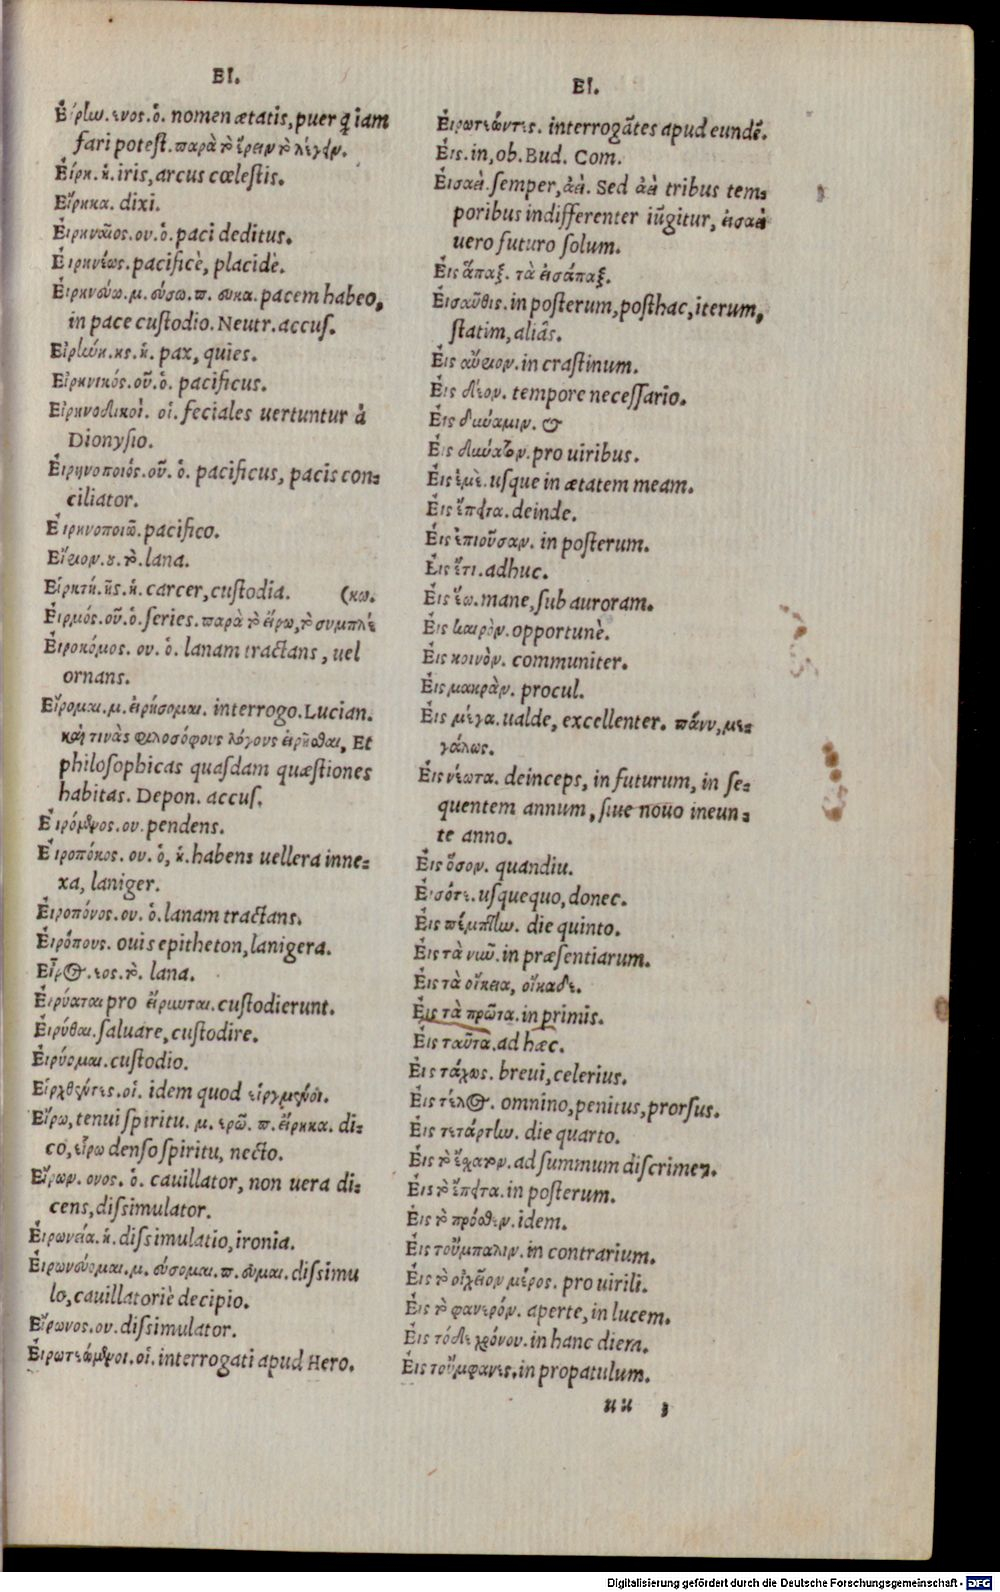 EI.
Εἴρην.ενος.ὁ. nomen ætatis, puer q̃ iam
fari potest. παρὰ τὸ εἴρειν τὸ λέγειν.
Εἴρη.ἡ. iris, arcus cœlestis.
Εἴρηκα. dixi.
Εἰρηναῖος.ου.ὁ. paci deditus.
Εἰρηνέως. pacificè, placidè.
Εἰρηνεύω.μ. εύσω.π. ευκα. pacem habeo,
in pace custodio. Neutr. accus.
Εἰρήνη.ης.ἡ. pax, quies.
Εἰρηνικός.οῦ.ὁ. pacificus.
Εἰρηνοδικοὶ. οἱ. feciales uertuntur à
Dionysio.
Εἰρηνοποιός.οῦ. ὁ. pacificus, pacis con-
ciliator.
Εἰρηνοποιῶ. pacifico.
Εἴριον.ου.τὸ. lana.
Εἱρκτή.ῆς.ἡ. carcer, custodia. (κω.
Εἱρμός.οῦ.ὁ. series. παρὰ τὸ εἴρω, τὸ συμπλέ
Εἰροκόμος. ου. ὁ. lanam tractans, uel
ornans.
Εἴρομαι.μ. εἰρήσομαι. interrogo. Lucian.
καὶ τινὰς φιλοσόφους λόγους εἰρῆσθαι, Et
philosophicas quasdam quæstiones
habitas. Depon. accus.
Εἰρόμενος.ου. pendens.
Εἰροπόκος. ου. ὁ, ἡ. habens uellera inne-
xa, laniger.
Εἰροπόνος.ου. ὁ. lanam tractans.
Εἰρόπους. ouis epitheton, lanigera.
Εἶρος.εος.τὸ. lana.
Εἰρύαται pro εἴρυνται. custodierunt.
Εἰρύσθαι. saluare, custodire.
Εἰρύομαι. custodio.
Εἰρχθέντες.οἱ. idem quod εἰργμένοι.
Εἴρω, tenui spiritu. μ. ερῶ. π. εἴρηκα. di-
co, εἵρω denso spiritu, necto.
Εἴρων. ονος. ὁ. cauillator, non uera di-
cens, dissimulator.
Εἰρωνεία.ἡ. dissimulatio, ironia.
Εἰρωνεύομαι.μ. εύσομαι.π. ευμαι. dissimu
lo, cauillatoriè decipio.
Εἴρωνος.ου. dissimulator.
Εἰρωτεώμενοι.οἱ. interrogati apud Hero.
EI.
Εἰρωτεῶντες. interrogãtes apud eundẽ.
Εἰς. in, ob. Bud. Com.
Εἰσαεὶ. semper, ἀεὶ. Sed ἀεὶ tribus tem-
poribus indifferenter iũgitur, εἰσαεὶ
uero futuro solum.
Εἰς ἅπαξ. τὰ εἰσάπαξ.
Εἰσαῦθις. in posterum, posthac, iterum,
statim, aliâs.
Εἰς αὔριον. in crastinum.
Εἰς δέον. tempore necessario.
Εἰς δύναμιν. &
Εἰς δυνατὸν. pro uiribus.
Εἰς ἐμὲ. usque in ætatem meam.
Εἰς ἔπειτα. deinde.
Εἰς ἐπιοῦσαν. in posterum.
Εἰς ἔτι. adhuc.
Εἰς ἕω. mane, sub auroram.
Εἰς καιρὸν. opportunè.
Εἰς κοινὸν. communiter.
Εἰς μακρὰν. procul.
Εἰς μέγα. ualde, excellenter. πάνυ, με-
γάλως.
Εἰς νέωτα. deinceps, in futurum, in se-
quentem annum, siue nouo ineun-
te anno.
Εἰς ὅσον. quandiu.
Εἰσότε. usquequo, donec.
Εἰς πέμπτην. die quinto.
Εἰς τὰ νυῦ. in præsentiarum.
Εἰς τὰ οἴκεια, οἴκαδε.
Εἰς τὰ πρῶτα. in primis.
Εἰς ταῦτα. ad hæc.
Εἰς τάχος. breui, celerius.
Εἰς τέλος. omnino, penitus, prorsus.
Εἰς τετάρτην. die quarto.
Εἰς τὸ ἔσχατον. ad summum discrimen.
Εἰς τὸ ἔπειτα. in posterum.
Εἰς τὸ πρόσθεν. idem.
Εἰς τοὔμπαλιν. in contrarium.
Εἰς τὸ οἰκεῖον μέρος. pro uirili.
Εἰς τὸ φανερόν. aperte, in lucem.
Εἰς τόδε χρόνου. in hanc diem.
Εἰς τοὔμφανες. in propatulum.
uu 3
Digitalisierung gefördert durch die Deutsche Forschungsgemeinschaft - DFG